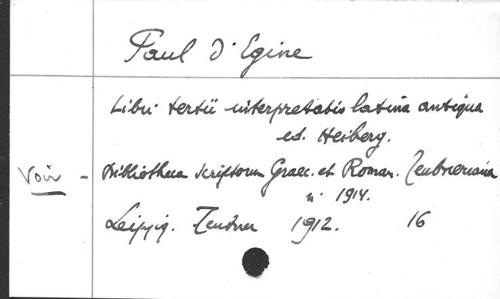 Paul d'Egine
Libri tertii interpretatio latina antiqua
ed. Heiberg.
Voir - Bibliotheca scriptorum Graec. et Roman. Teubneriana
n° 1914.
Leipzig. Teubner 1912. 16